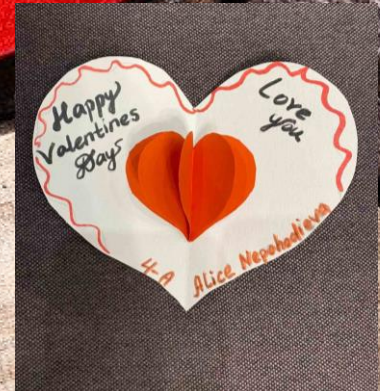 Happy
Valentines
Days
Love
you
4-A Alice Nepohodieva